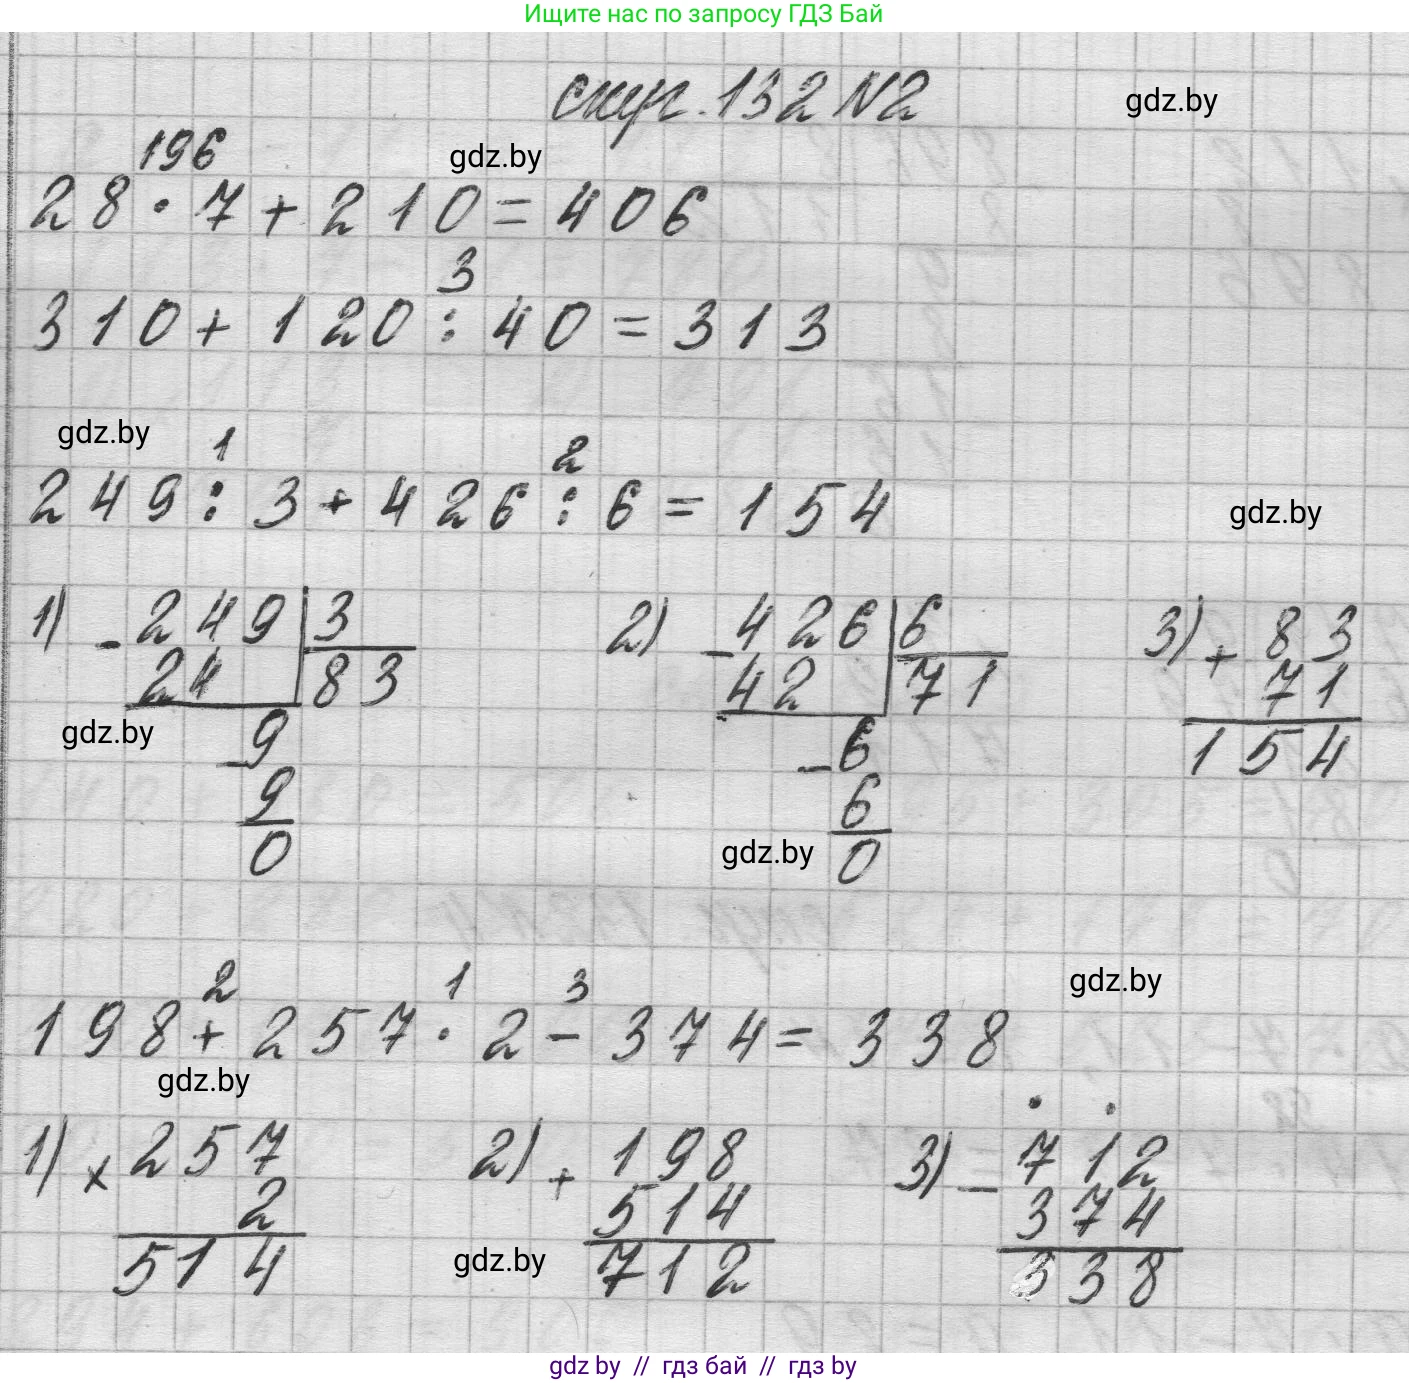 Ищите нас по запросу ГДЗ Бай
стр. 132 N2
gdz.by
gdz.by
196
28 · 7 + 210 = 406
3
310 + 120 : 40 = 313
gdz.by
1 2
249 : 3 + 426 : 6 = 154
gdz.by
1) - 249 | 3 2) - 426 | 6 3) + 83
24 83 42 71 71
gdz.by
- 9 - 6 154
9 6
gdz.by
0 0
gdz.by
2 1 3
198 + 257 · 2 - 374 = 338
gdz.by
1) x 257 2) + 198 3) - 712
2 514 374
gdz.by
514 712 338
gdz by // гдз бай // гдз by